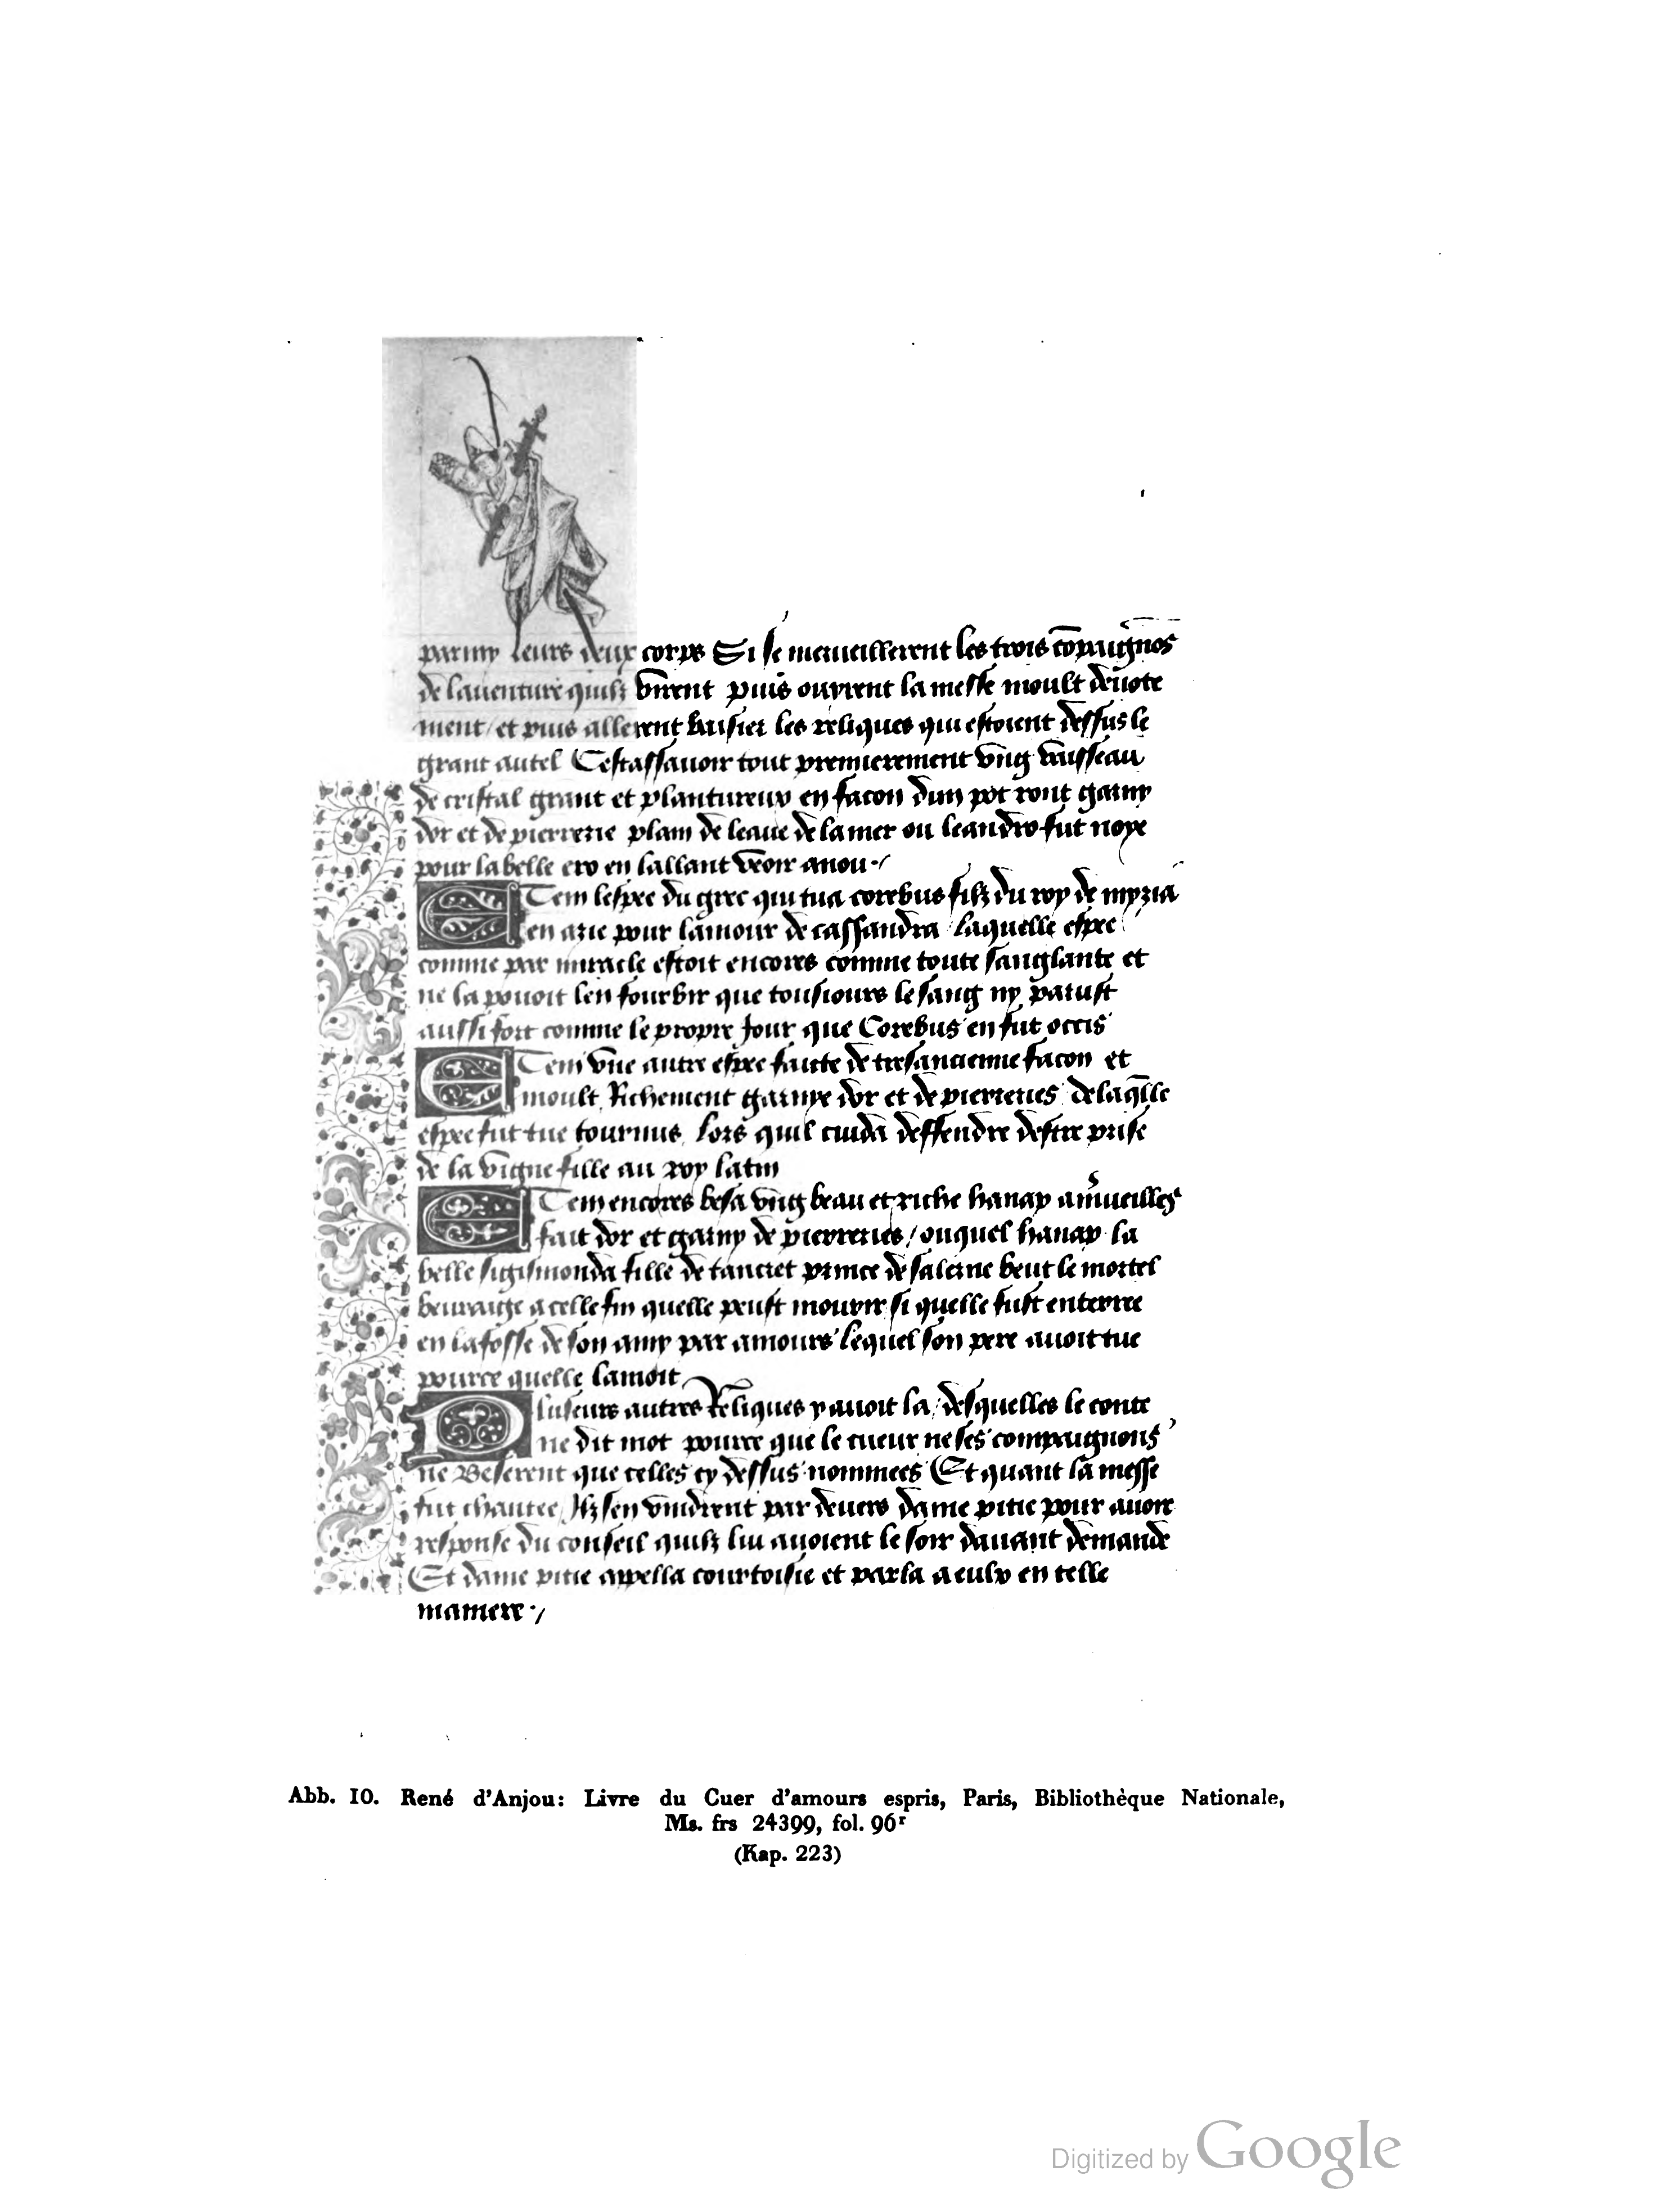 parmy leurs deux corps Si se merueillerent les trois cōpaignōs
de lauenture quilz virent puis ouyrent la messe moult deuote
ment / et puis allerent baisier les reliques qui estoient dessus le
grant autel Cestassauoir tout premierement vng vaisseau
de cristal grant et plantureux en facon dun pot ront garny
dor et de pierrerie plain de leaue de la mer ou leandro fut noye
pour la belle ero en lallant veoir anou·/
ITem lespee du grec qui tua corebus filz du roy de myzia
en azie pour lamour de cassandra laquelle espee
comme par miracle estoit encores comme toute sanglante et
ne la pouoit len fourbir que tousiours le sang ny parust
aussi fort comme le propre Jour que Corebus en fut occis
ITem vne autre espee faicte de tresancienne facon et
moult Richement garnye dor et de pierreries de laq̄lle
espee fut tue tournus lors quil cuida deffendre destre prise
de la vigne fille au roy latin
ITem encores besa vng beau et riche hanap a m̃ueilles
fait dor et garny de pierreries / ouquel hanap la
belle sigismonda fille de tancret prince de salerne beut le mortel
beuuraige a celle fin quelle peust mourir si quelle fust enterree
en la fosse de son amy par amours lequel son pere auoit tue
pource quelle lamoit
PLuseurs autres Reliques y auoit la / desquelles le conte
ne dit mot pource que le cueur ne ses compaignons
ne Beserent que celles cy dessus nommees Et quant la messe
fut chantee Ilz sen vindrent par deuers dame pitie pour auoir
response du conseil quilz lui auoient le soir dauant demande
Et dame pitie appella courtoisie et parla a eulx en telle
maniere·/
Abb. 10. René d'Anjou: Livre du Cuer d'amours espris, Paris, Bibliothèque Nationale,
Ms. frs 24399, fol. 96r
(Kap. 223)
Digitized by Google